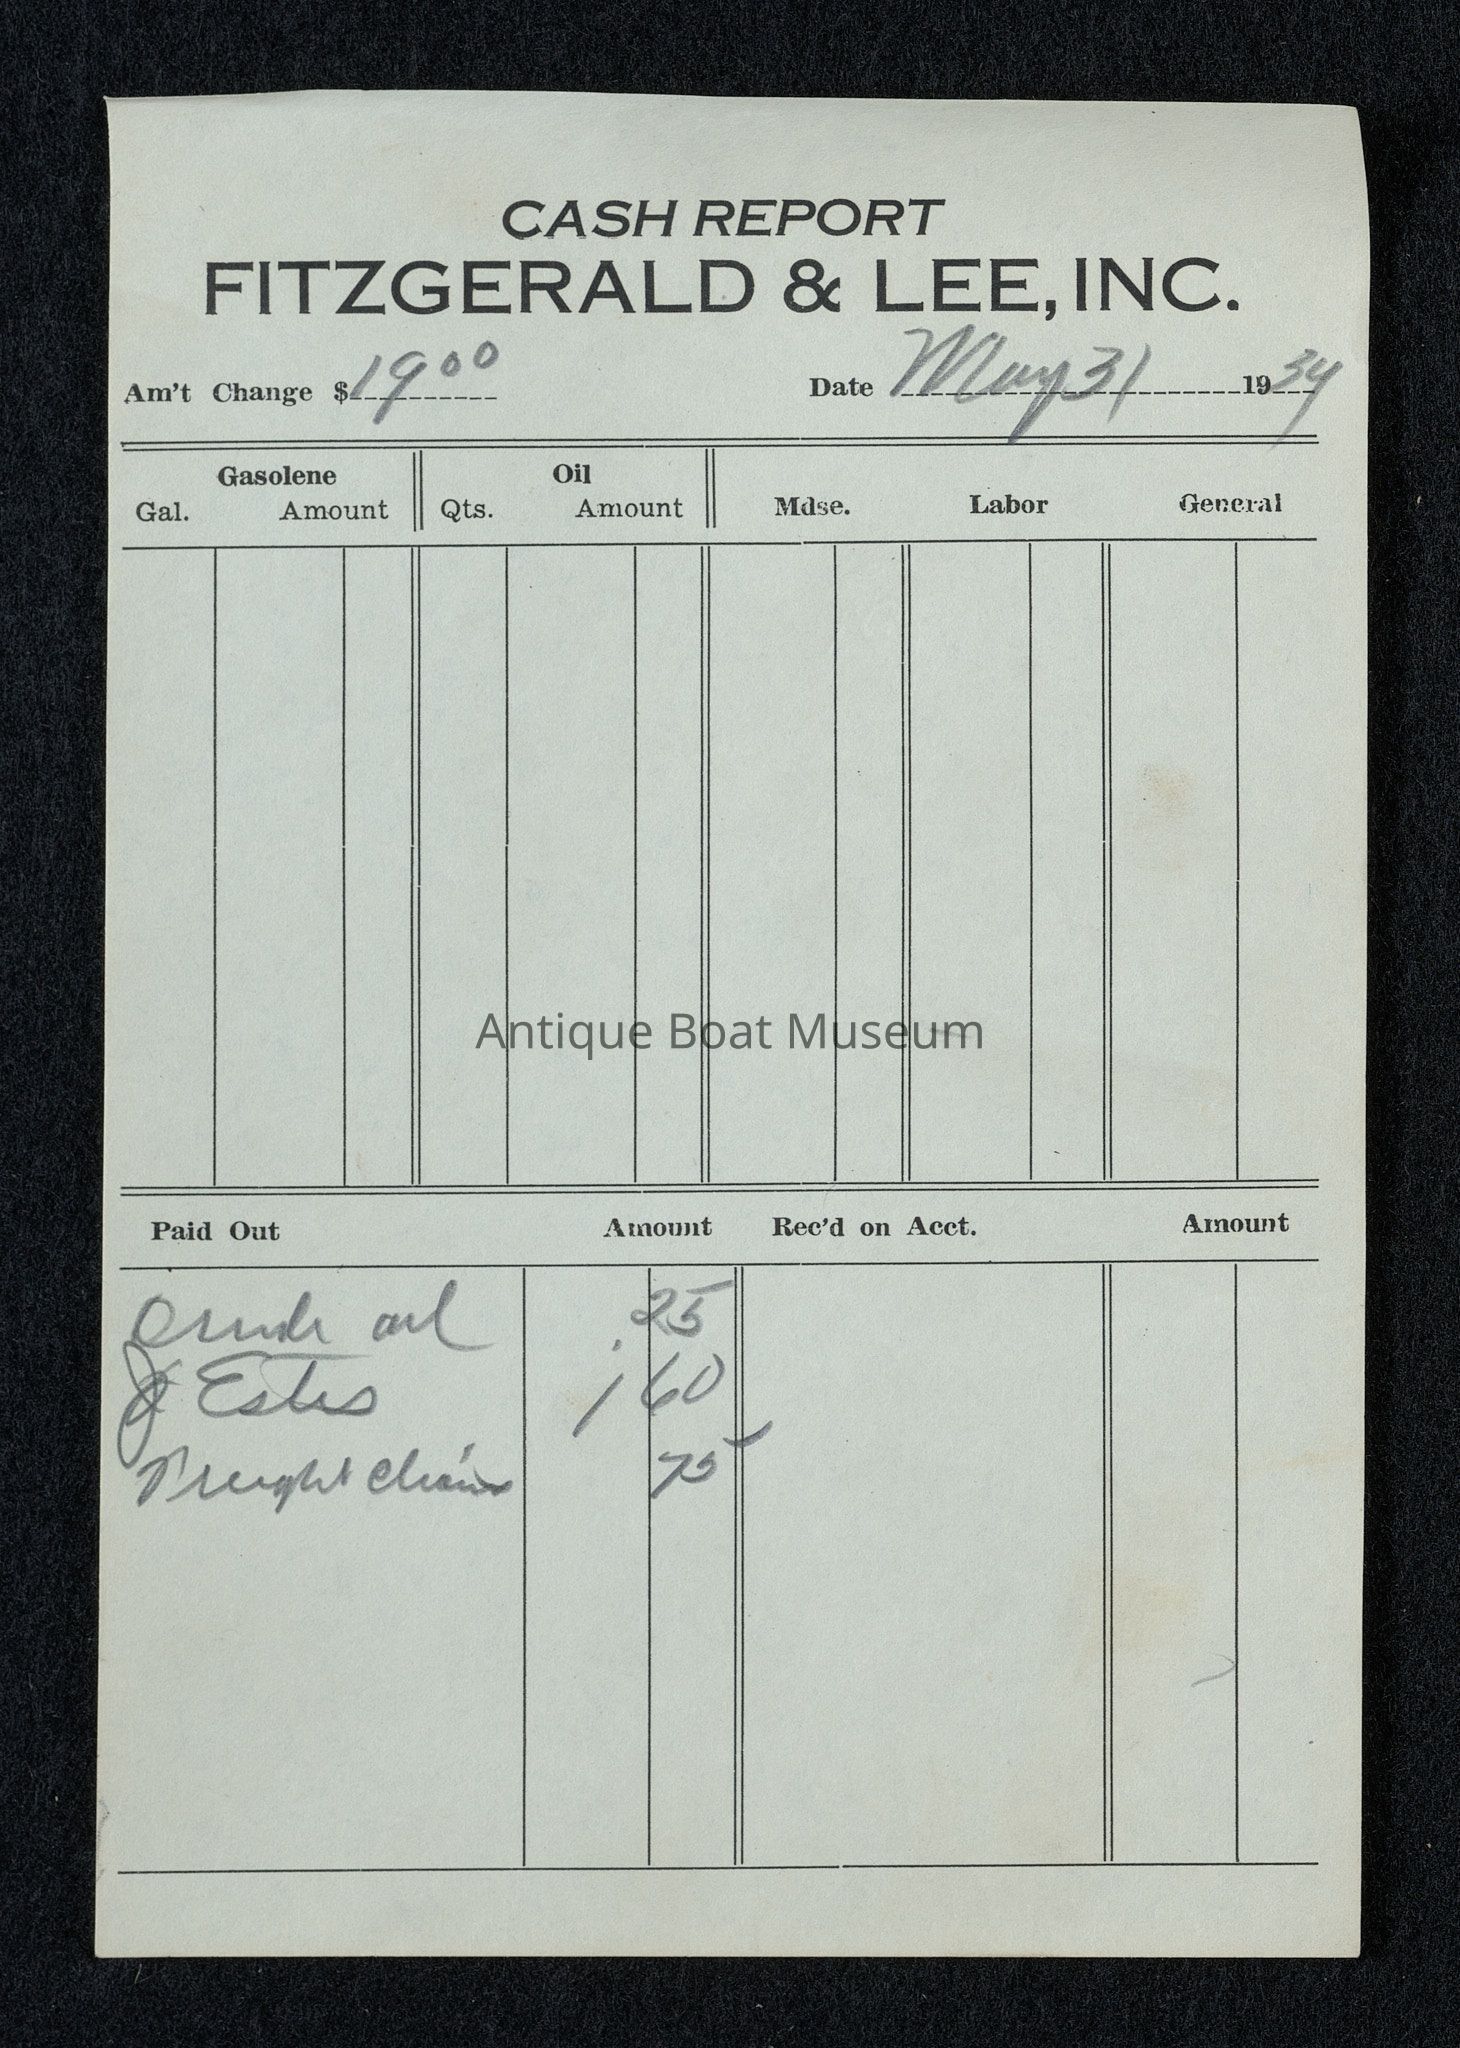 CASH REPORT
FITZGERALD & LEE, INC.
Am't Change $ 19 00 Date May 31 1934
Gasolene Oil
Gal. Amount Qts. Amount Mdse. Labor General
Antique Boat Museum
Paid Out Amount Rec'd on Acct. Amount
Crude oil .25
J Estes 1 60
Freight chairs 75